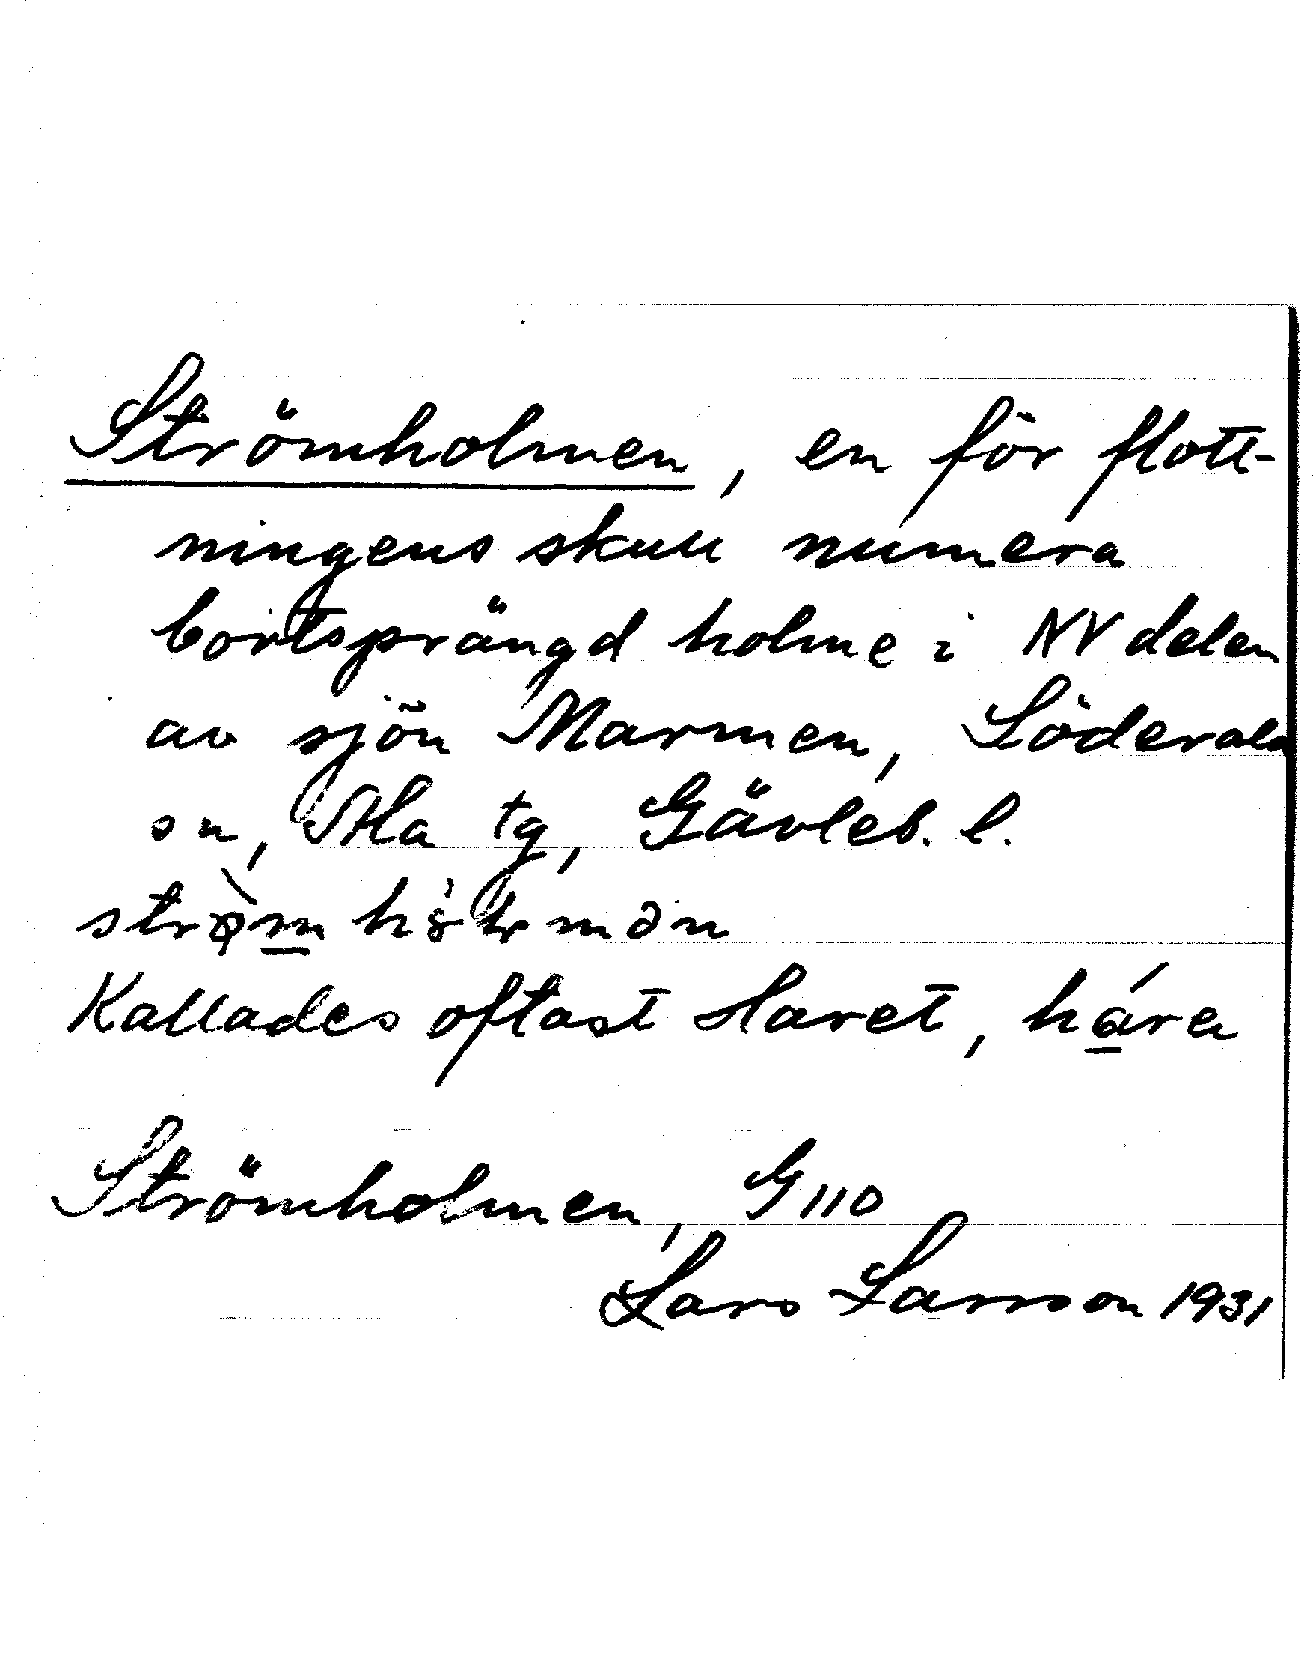 Strömholmen, en för flott-
ningens skull numera
bortsprängd holme i NV delen
av sjön Marmen, Söderala
sn, Ala tg, Gävleb. l.
Kallades oftast Haret, hára
Strömholmen, G110
Lars Larsson 1931